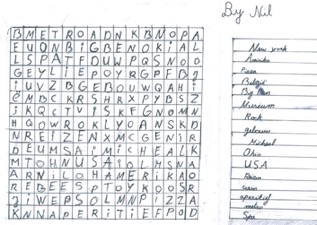 By Nil
BMETROADNKBNOPA
EUQNBIGBENOKIAL
LSPATFDUWPQSNOO
GEYLIEPOYRGPFBJ
IUVZBGEBOUWQAHI
CMBCKRSHRXPYBSZ
IKQCTVISKFGNOMN
HQOWROKLYOANSKD
NREIZENXMCGENIR
DEUMSAIMICHEALK
MTOHNUSAIOLMSNA
ARNILOHAMERIKAO
REBEESPTOYKOOSR
JIWEPSOLMNPIZZA
KNNAPERITIEFPOD
New york
Amerika
Pizza
België
Big Ben
Museum
Rock
gebouw
Micheal
Ohio
USA
Reizen
trein
aperitief
metro
Spa